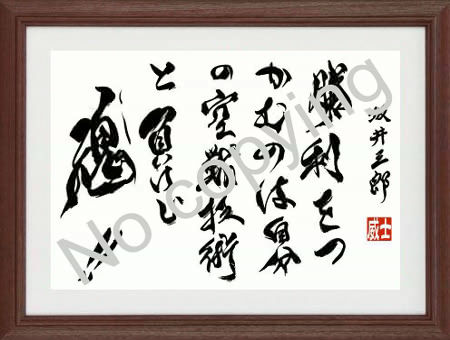 坂井三郎
威士
勝利をつ
かむのは自分
の空戦技術
と負けじ
魂
No copying